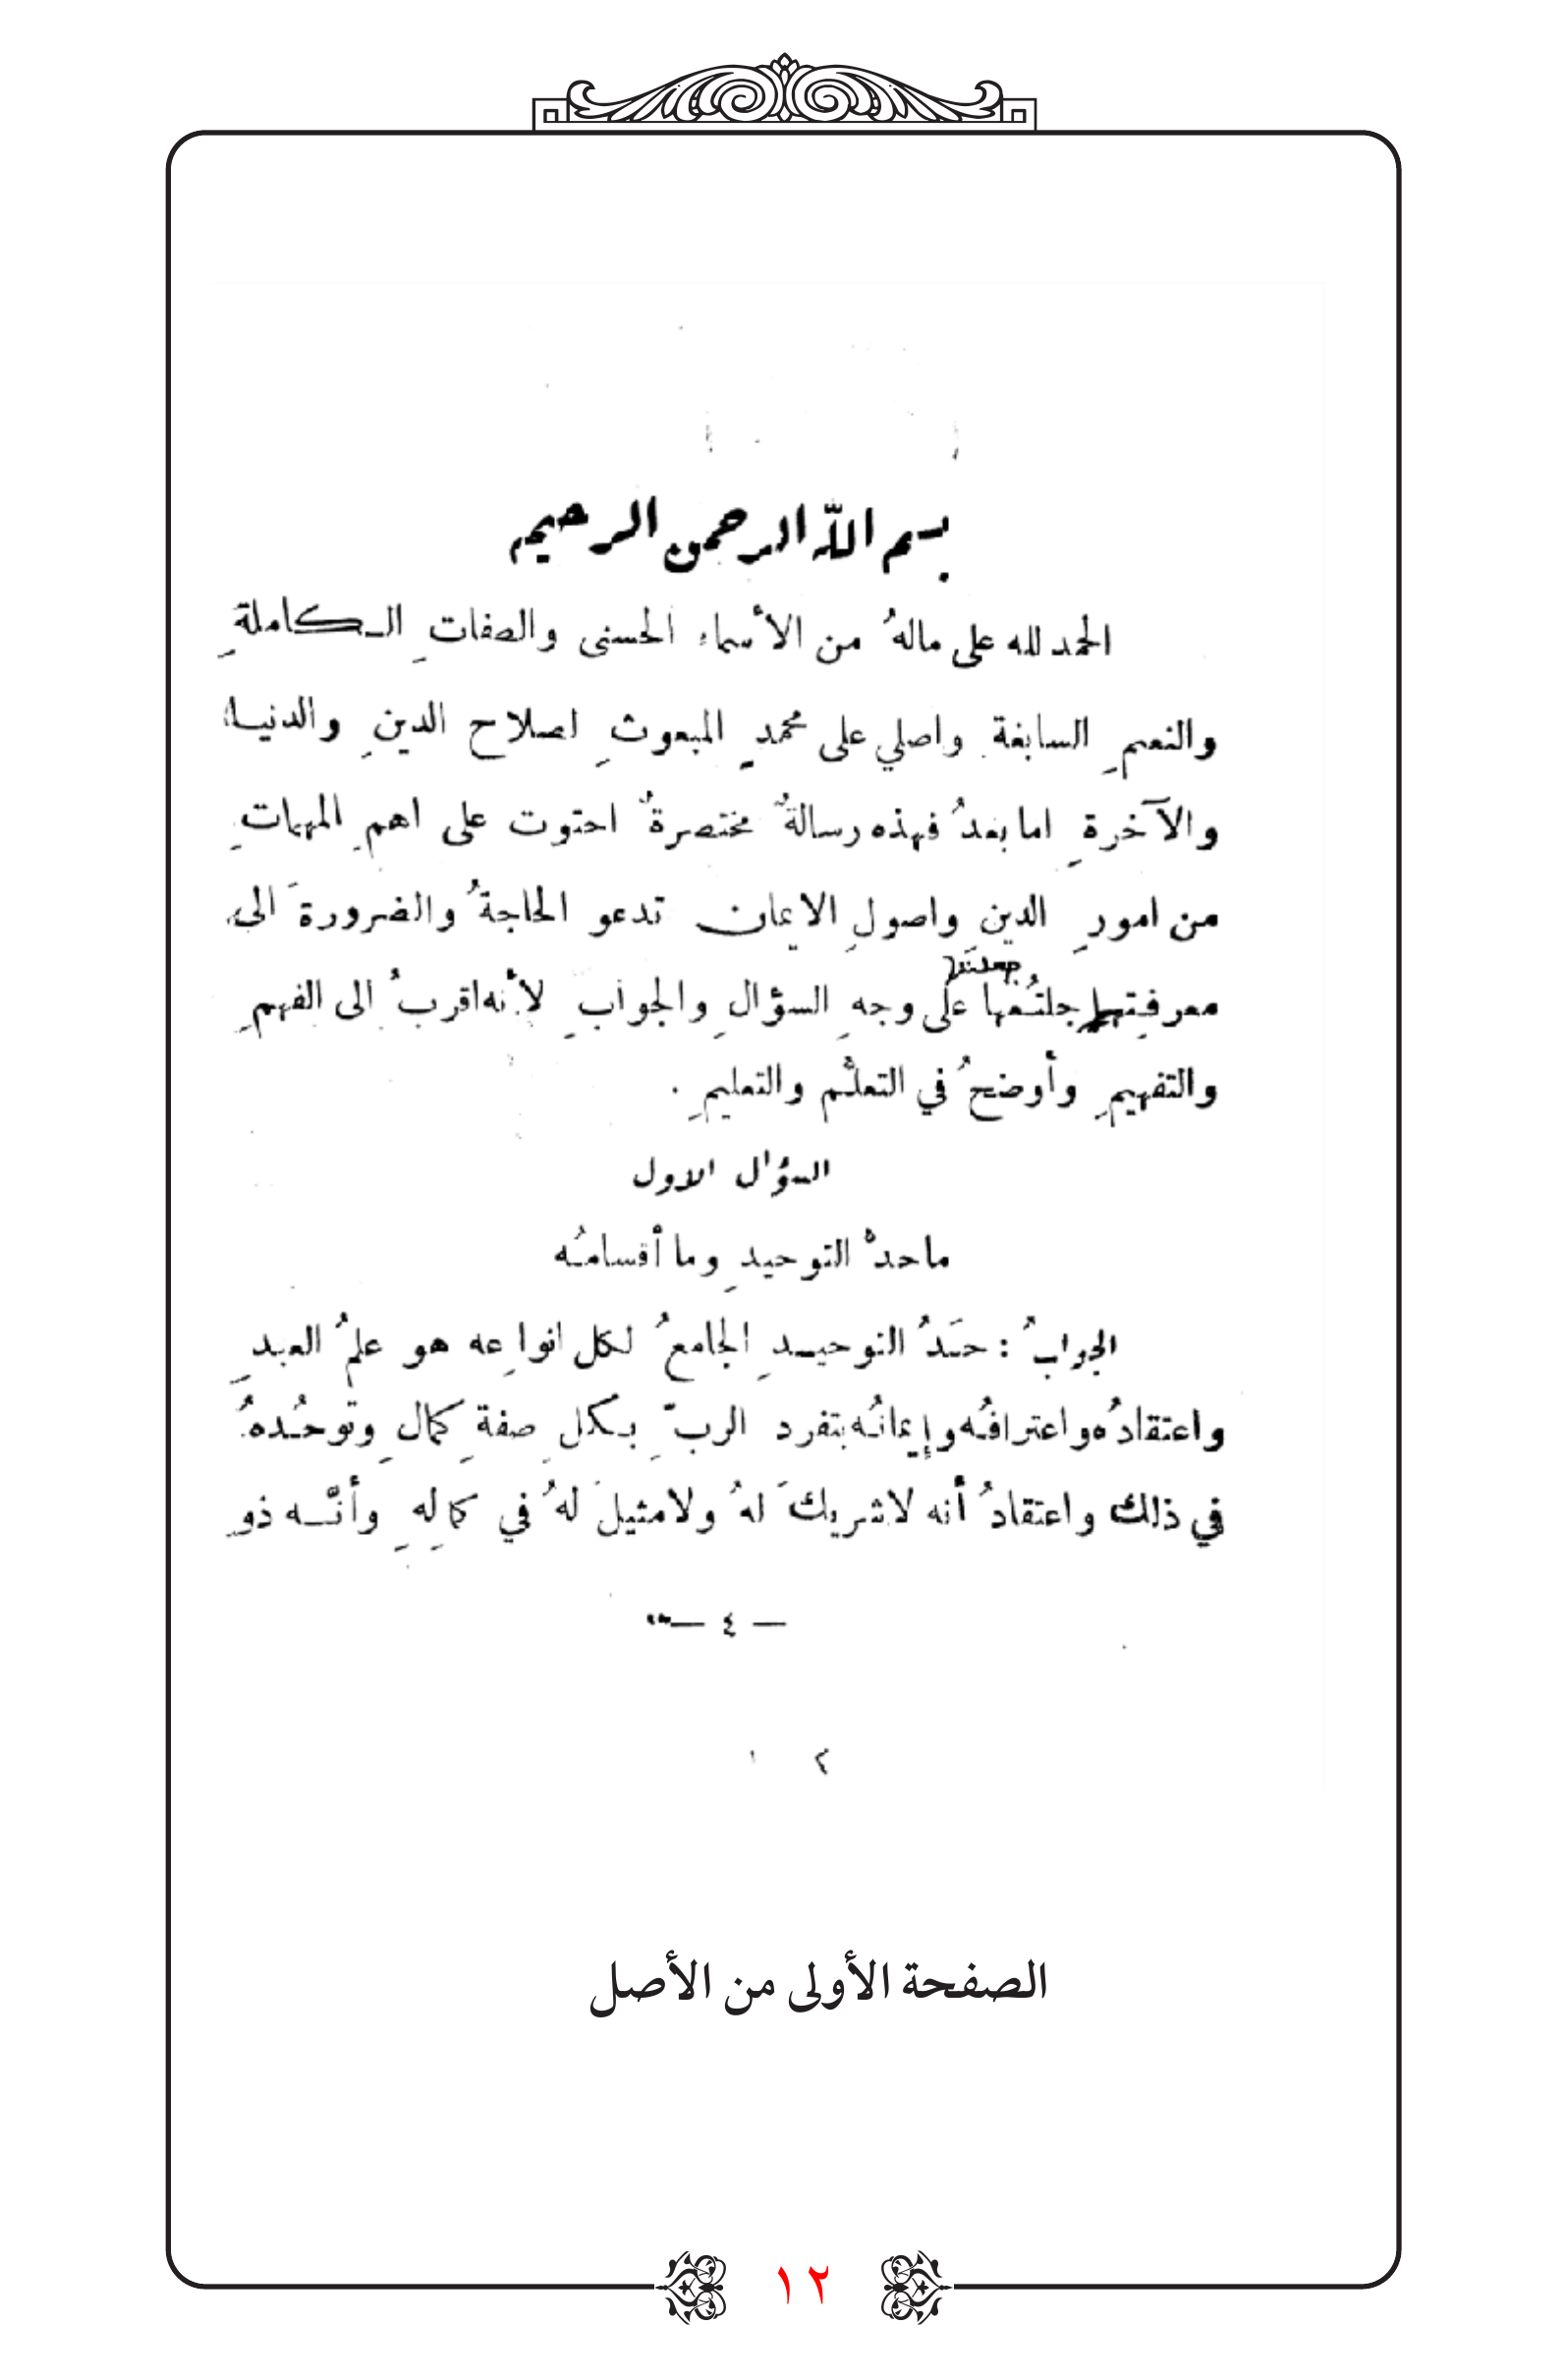 بسم اللّه الرحمن الرحيم
الحمد لله على ماله من الأسماء الحسنى والصفاتِ الـكاملةِ
والنعمِ السابغة واصلي على محمدٍ المبعوثِ لصلاح الدينِ والدنيـا
والآخرةِ اما بعدُ فهذه رسالةٌ مختصرةٌ احتوت على اهمِ المهماتِ
من امورِ الدينِ واصولِ الايمان تدعو الحاجةُ والضرورةَ الى
جعلتها
معرفتها جلتُها على وجهِ السؤالِ والجوابِ لأنه اقربُ الى الفهمِ
والتفهيمِ وأوضحُ في التعلُّم والتعليمِ .
السؤال الاول
ماحدُّ التوحيدِ وما أقسامُـه
الجوابُ : حَدُّ التوحيـدِ الجامعُ لكل انواعِه هو علمُ العبدِ
واعتقادُه واعترافُـه وإيمانُـه بتفرد الربِّ بـكلِ صفةِ كمالِ وتوحُـدهُ
في ذلك واعتقادُ أنه لاشريكَ لهُ ولامثيلَ لهُ في كمالِهِ وأنَّـه ذو
— ٤ —
٢ ١
الصفحة الأولى من الأصل
١٢